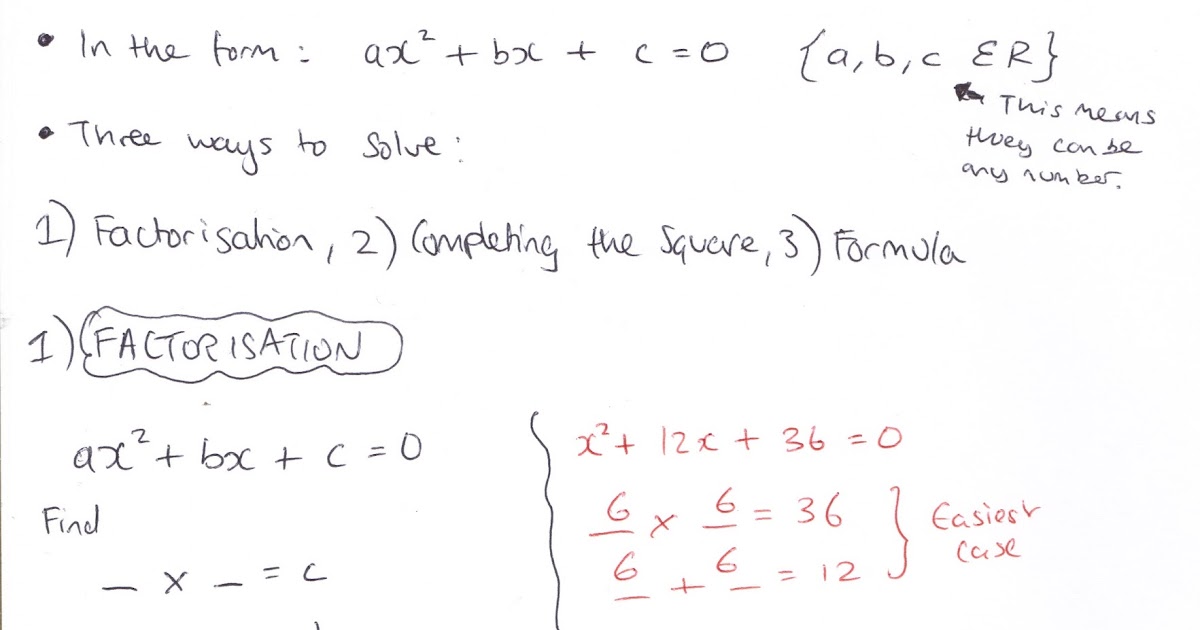 • In the form: ax² + bx + c = 0 {a, b, c ER}
This means
they can be
any number.
• Three ways to solve:
1) Factorisation, 2) Completing the square, 3) Formula
1) FACTORISATION
ax² + bx + c = 0
Find
_ x _ = c
x² + 12x + 36 = 0
6 x 6 = 36
6 + 6 = 12
Easiest
case